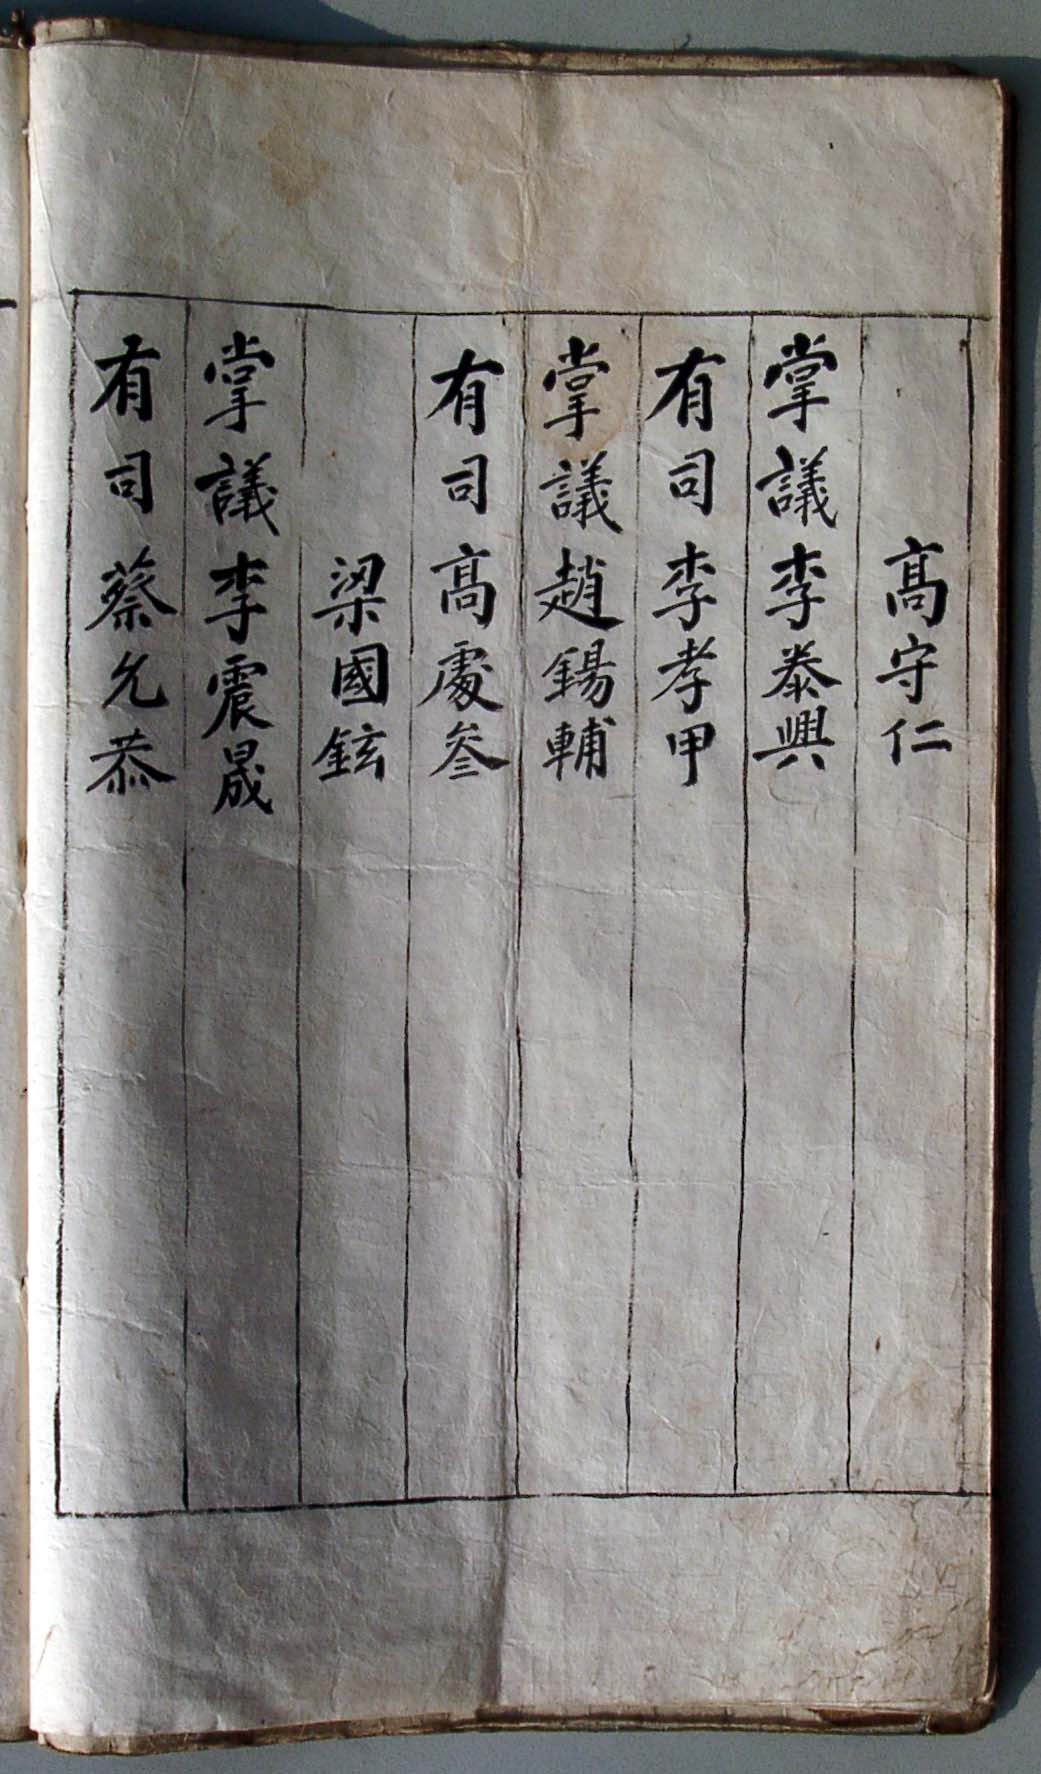 高守仁
掌議李泰興
有司李孝甲
掌議趙錫輔
有司高處叅
梁國鉉
掌議李震晟
有司蔡允恭